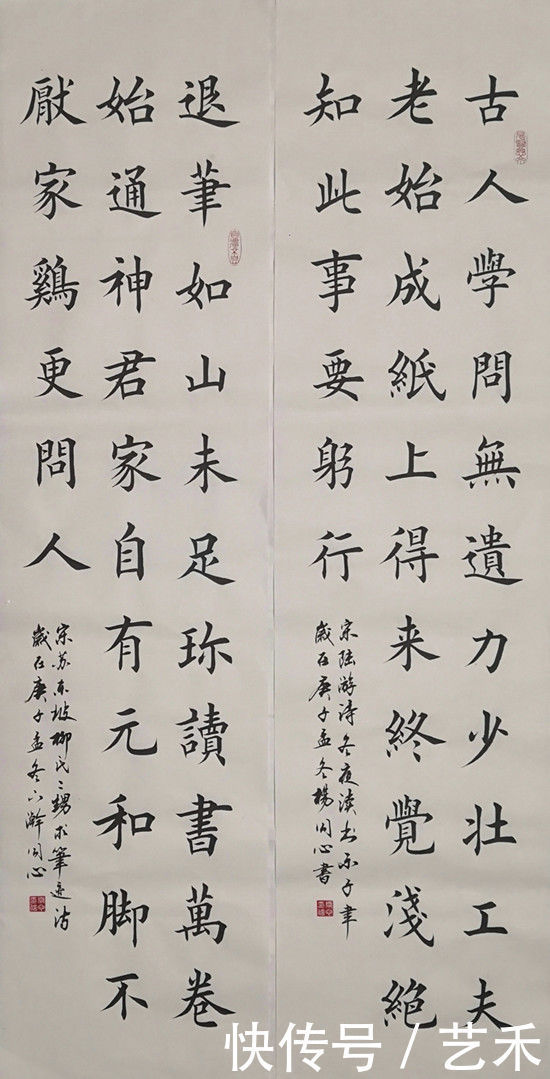 古人學問無遺力少壮工夫
老始成紙上得来終覺淺絕
知此事要躬行
宋陸游詩冬夜读书示子聿
歲在庚子孟冬楊同心書
退筆如山未足珎讀書萬卷
始通神君家自有元和脚不
厭家鷄更問人
宋苏东坡柳氏二甥求筆迹诗
歲在庚子孟冬下澣同心
快传号 / 艺禾